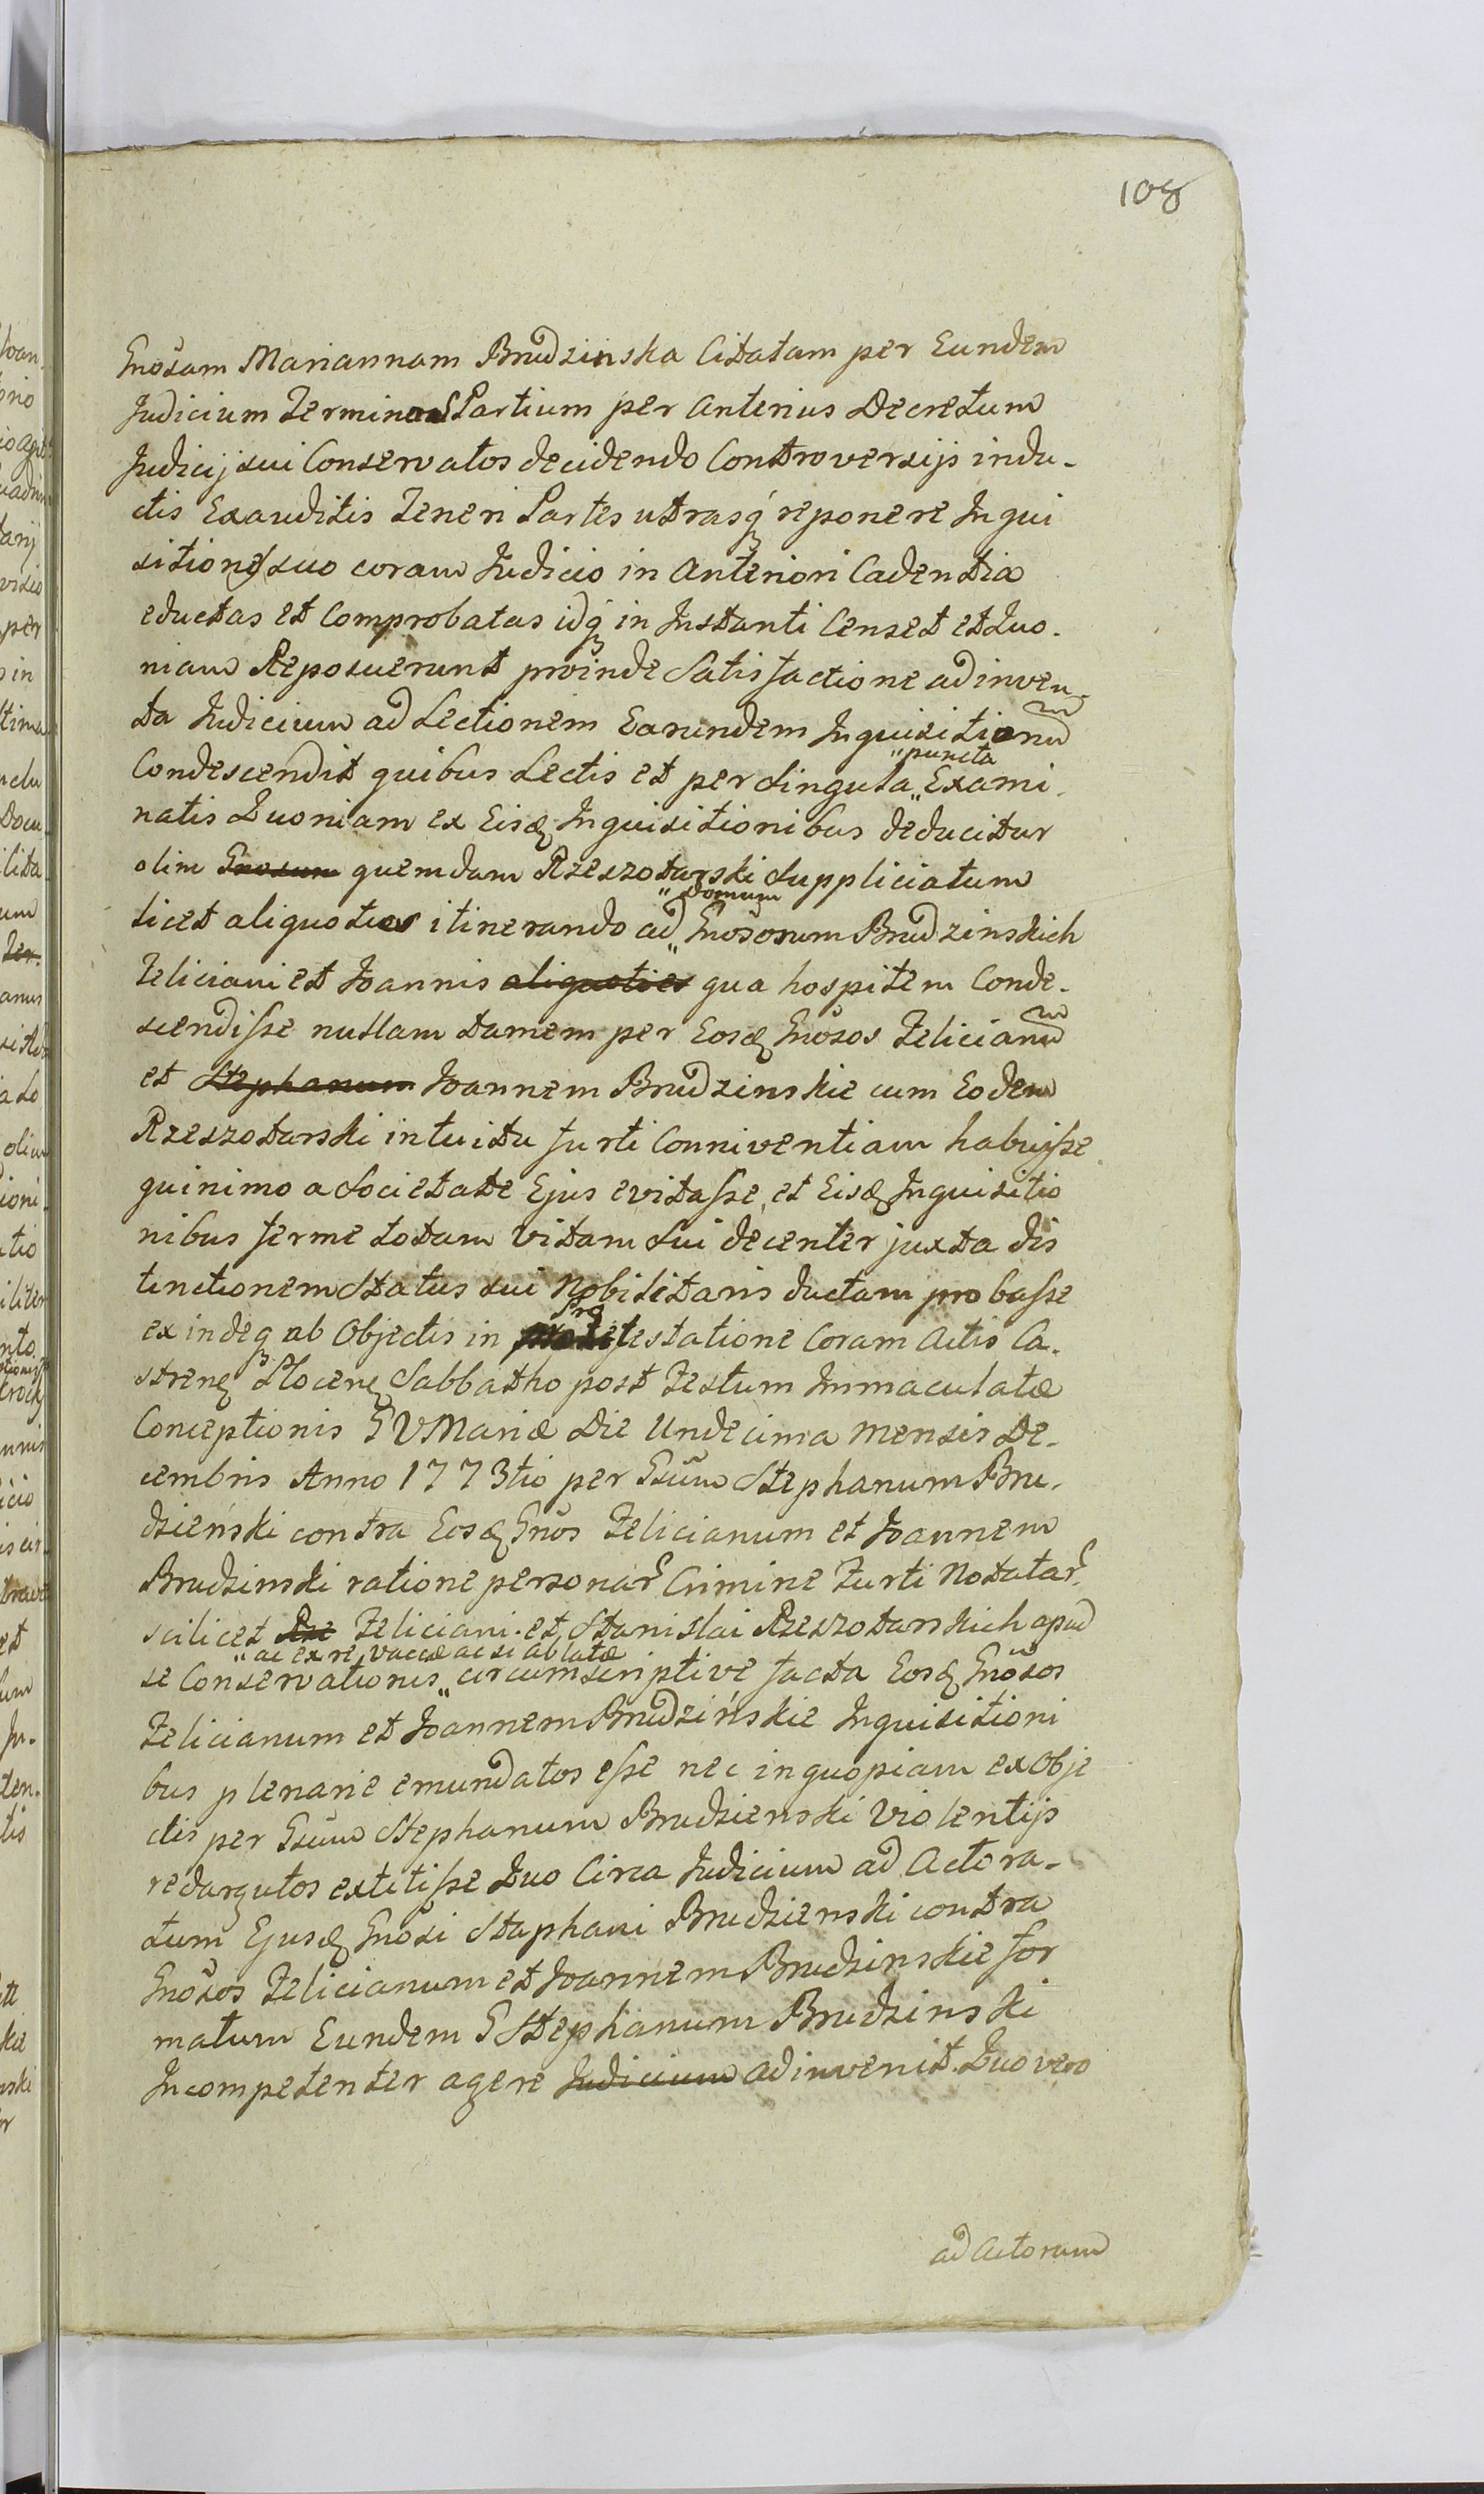 108
Gnosam Mariannam Brudzinska Citatam per Eundem
Judicium Terminos Partium per Anterius Decretum
Judicij sui Conservatos decidendo Controversijs indu-
ctis Exauditis Teneri Partes utrasq́ reponere Inqui
sitiones suo coram Judicio in Anteriori Cadentia
eductas et Comprobatas idq́ in Instanti Censet et Quo-
niam Reposuerunt proinde Satisfactione adinven-
ta Judicium ad Lectionem Earundem Inquisitionũ
Condescendit quibus Lectis et per Singula „ puncta „ Exami-
natis Quoniam ex Eisd. Inquisitionibus deducitur
olim Gnosum quemdam Rzeszotarski Suppliciatum
licet aliquoties itinerando ad „ Domum „ Gnosorum Brudzinskich
Feliciani et Joannis aliquoties qua hospitem Conde-
scendisse nullam tamem per Eosd. Gnosos Felicianũ
et Stephanum Joannem Brudzinskie cum Eodem
Rzeszotarski intuitu furti Conniventiam habuisse
quinimo a Societate Ejus evitasse, et Eisd. Inquisitio
nibus ferme totam Vitam Sui decenter juxta dis
tinctionem Status sui Nobilitaris ductam probasse
exindeq ab Objectis in Protestatione Coram Actis Ca-
stren. Plocen. Sabbatho post Festum Immaculatæ
Conceptionis B V Mariæ Die Undecima mensis De-
cembris Anno 1773tio per Gsum Stephanum Bru-
dzieński contra Eosd. Gnos Felicianum et Joannem
Brudzinski ratione personar. Crimine Furti Notatar.
scilicet Rze Feliciani et Stanislai Rzeszotarskich apud
se Conservationis „ ac ex re vaccæ ac si ablatæ „ circumscriptive facta Eosd. Gnosos
Felicianum et Joannem Brudzińskie Inquisitioni
bus plenarie emundatos esse nec in quopiam ex Obje
ctis per Gsum Stephanum Brudzienski Violentijs
redargutos extitisse Quo Circa Judicium ad Actora-
tum Ejusd. Gnosi Staphani Brudzienski contra
Gnosos Felicianum et Joannem Brudzinskie for
matum Eundem G Stephanum Brudzinski
Incompetenter agere Judicium adinvenit. Quo vero
ad Actorum